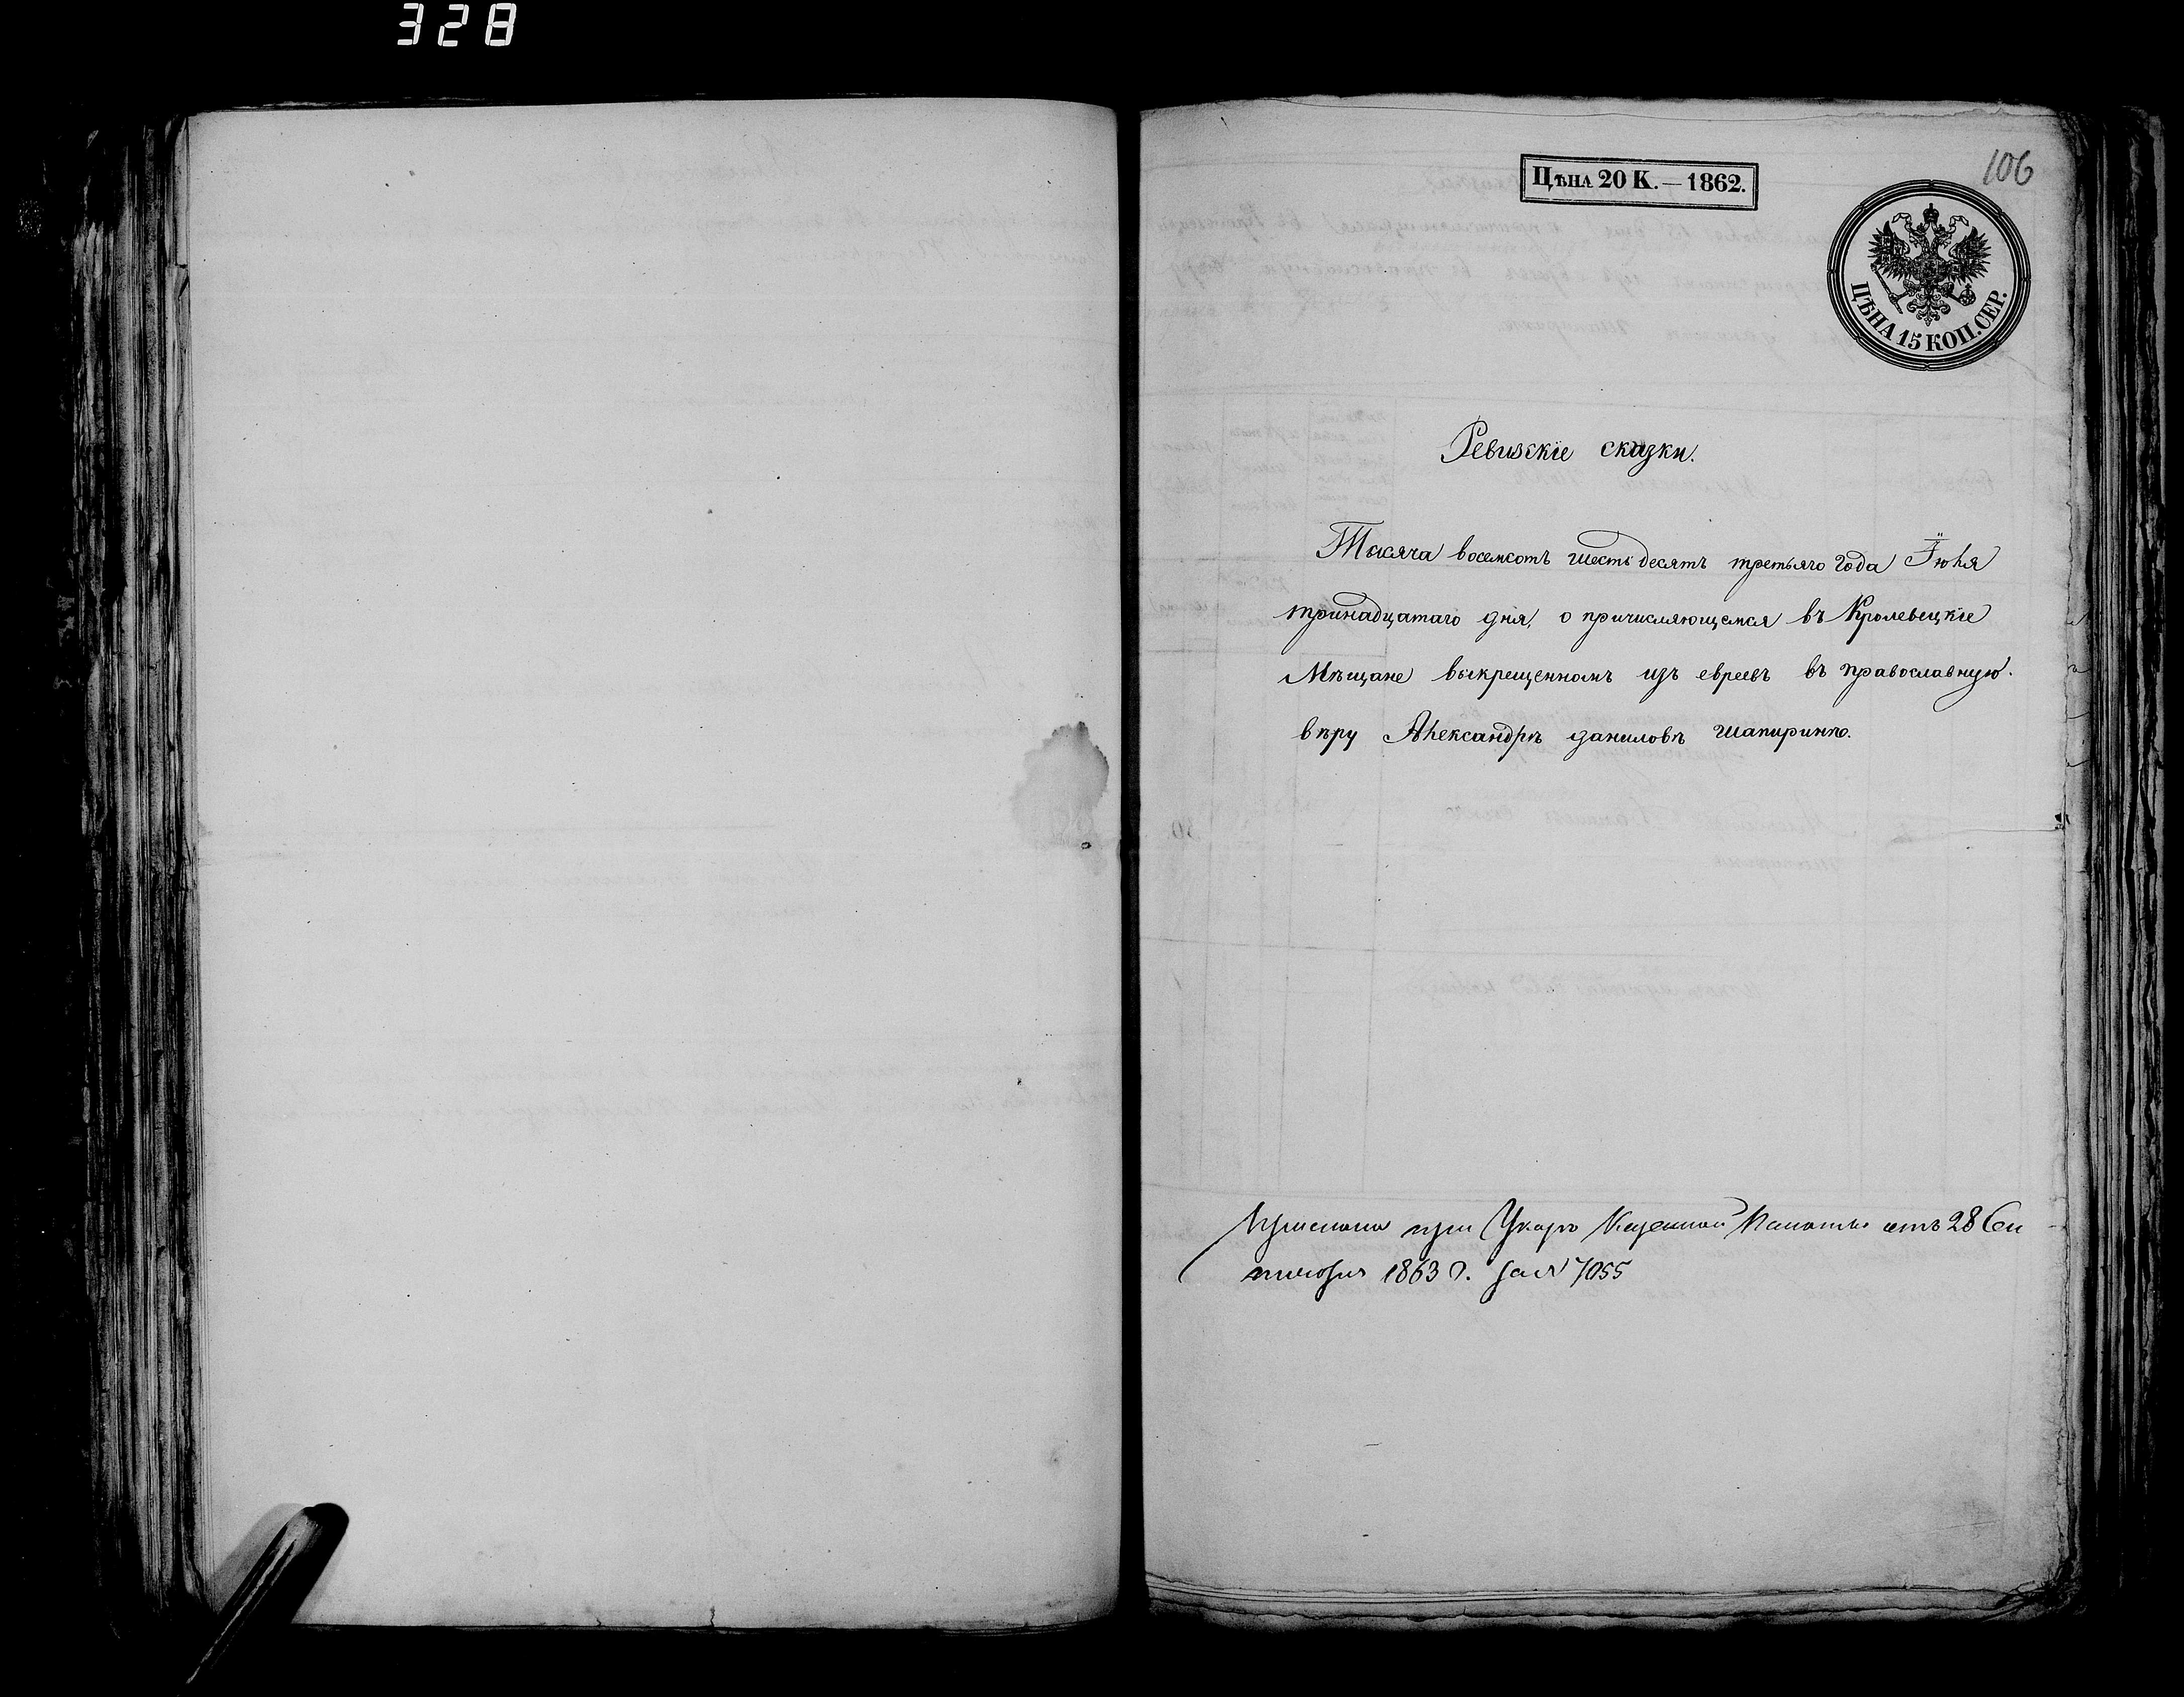 328
106
Цѣна 20 К.—1862.
ЦѢНА 15 КОП. СЕР.
Ревизскіе сказки.
Тысяча восемсотъ шестьдесятъ третьяго года Іюля
тринадцатаго дня, о причисляющемся въ Кролевецкіе
Мѣщане выкрещенномъ изъ евреевъ въ православную
вѣру Александрѣ Даниловѣ Шапиринѣ.
при Указѣ Казенной Палаты отъ 28 Сен
тября 1863 г. за № 7055